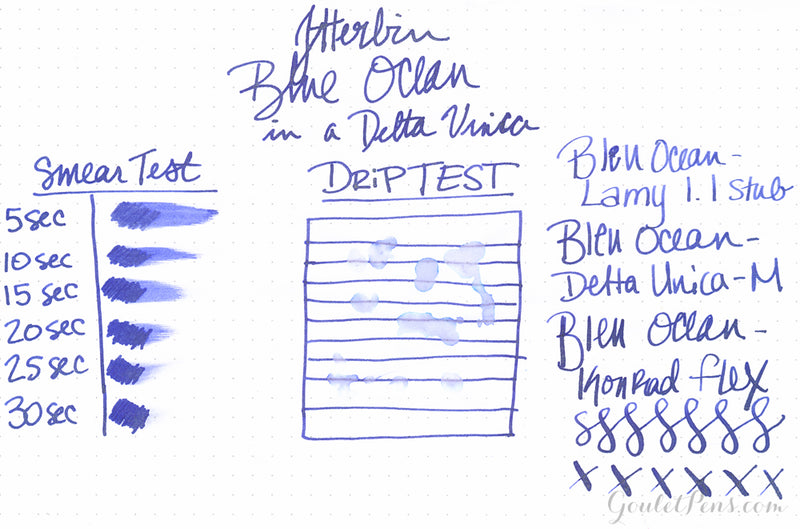 JHerbin
Blue Ocean
in a Delta Unica
Smear Test
5sec
10sec
15sec
20sec
25sec
30sec
DRiP TEST
Bleu Ocean-
Lamy 1.1 Stub
Bleu Ocean-
Delta Unica-M
Bleu Ocean-
Konrad flex
S S S S S S S
x x x x x x
GouletPens.com